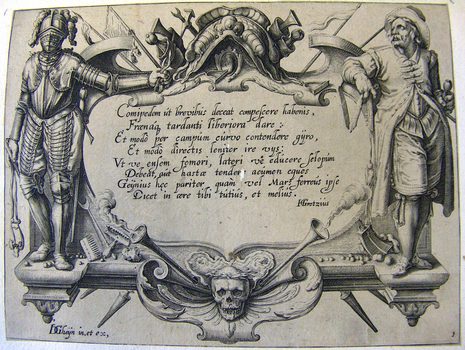 Cornipedem ut brevibus deceat compescere habenis,
Frenaq tardanti liberiora dare:
Et modò per campum curvo contendere gyro,
Et modò directis leniter ire vijs:
Vt ve ensem femori, lateri vè educere sclopum
Debeat, aut hastæ tendere acumen eques
Geijnius hæc pariter, quam vel Mars ferreus ipse
Dicet in ære tibi tutius, et melius.
HGrotzius
DGheijn in. et ex,
1